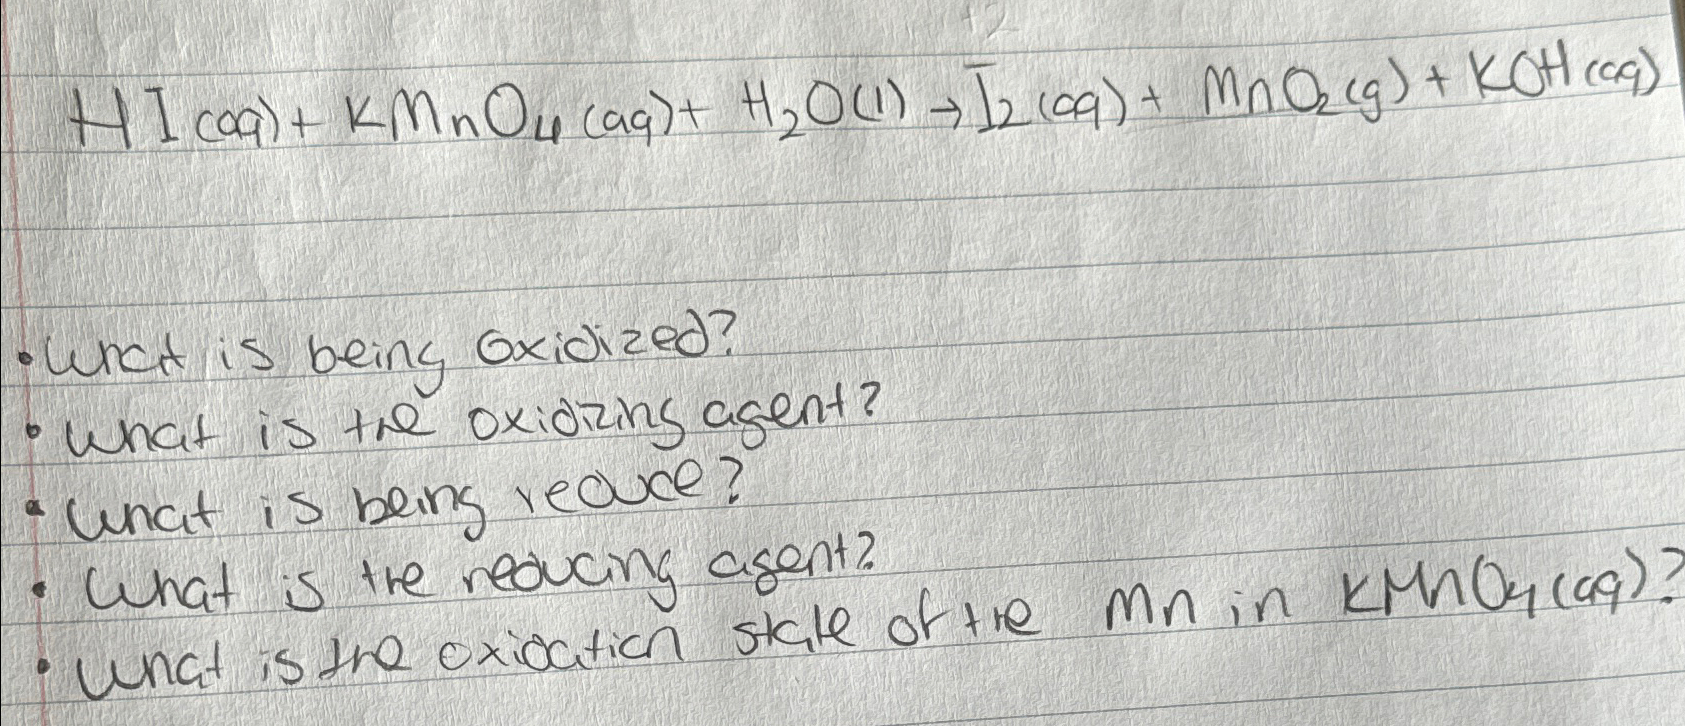 +2
HI(aq) + KMnO₄(aq) + H₂O(l) → I₂(aq) + MnO₂(g) + KOH(aq)
• What is being oxidized?
• What is the oxidizing agent?
• What is being reduce?
• What is the reducing agent?
• What is the oxidation state of the Mn in KMnO₄(aq)?